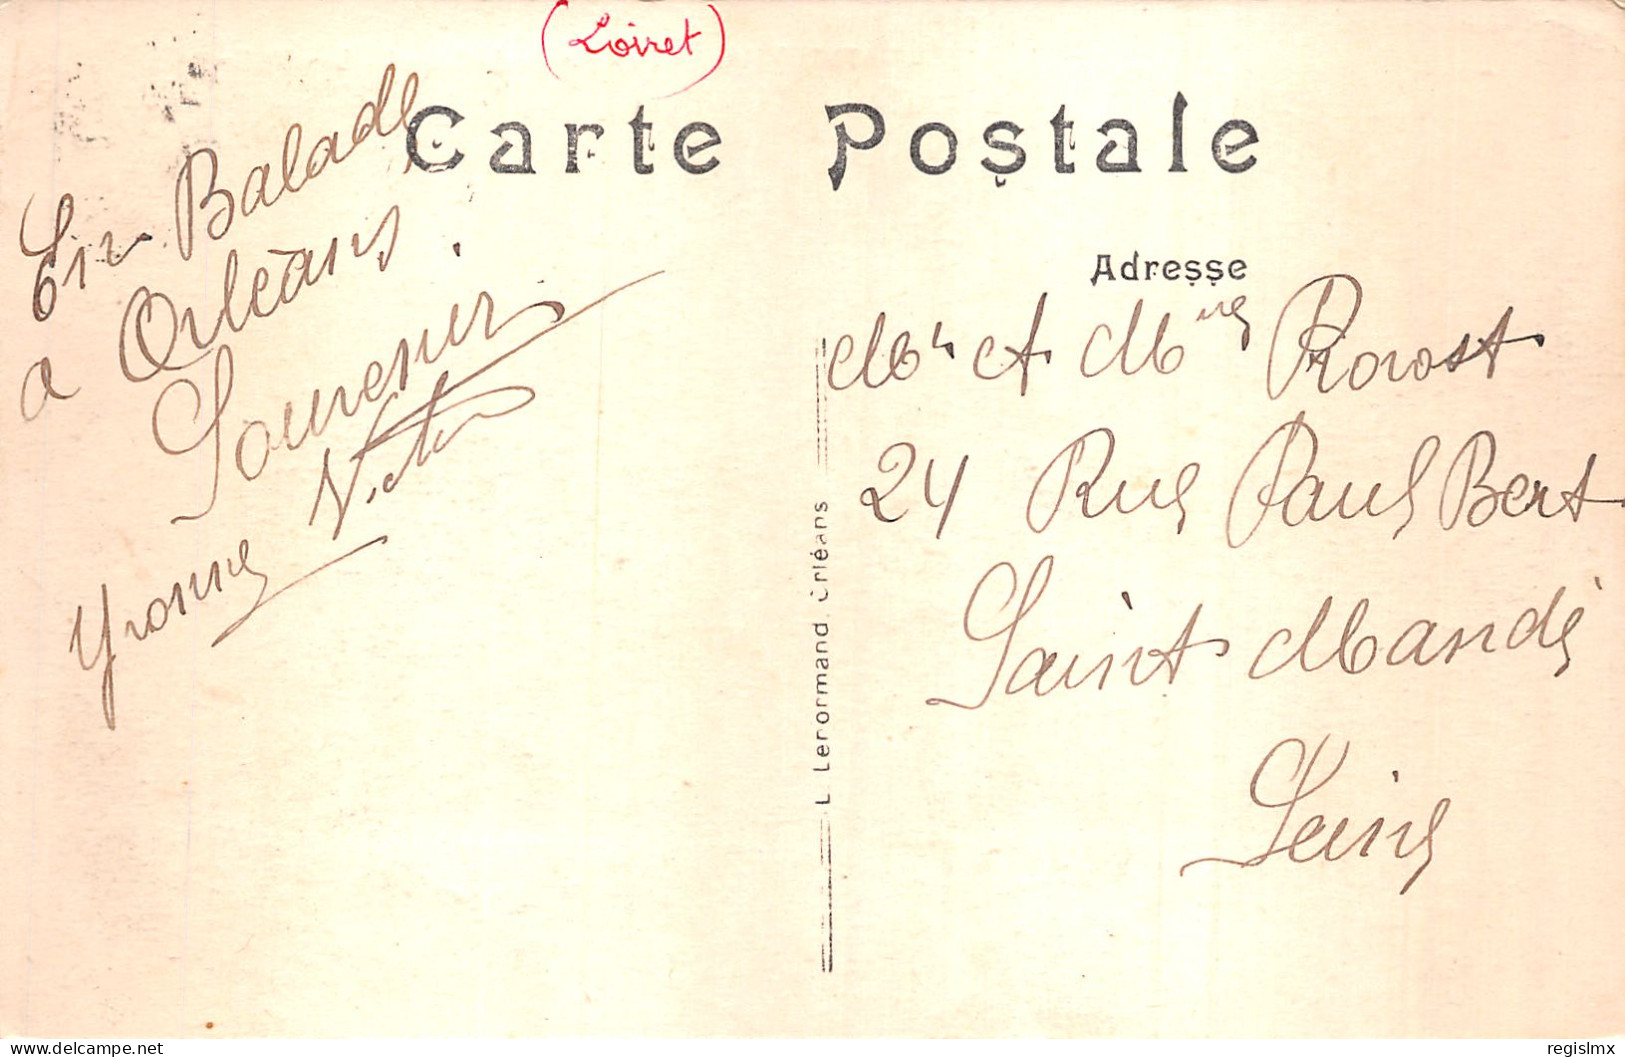 (Loiret)
Carte Postale
En Balade
a Orléans.
Souvenir
Victor
Yvonne
Adresse
Mr et Mme Provost
24 Rue Paul Bert
Saint Mandé
Seine
L Lenormand, Orléans
delcampe.net
regislmx